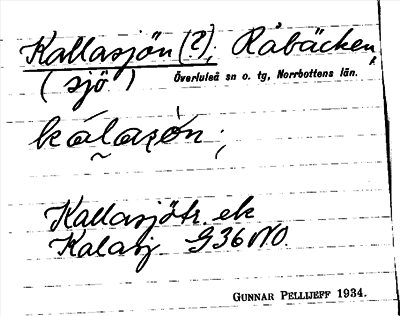 Kallasjön (?), Råbäcken,
(sjö) Överluleå sn o. tg, Norrbottens län.
kálasǿn ;
Kallasjötr. ek
Kalasj. G36NO.
GUNNAR PELLIJEFF 1934.